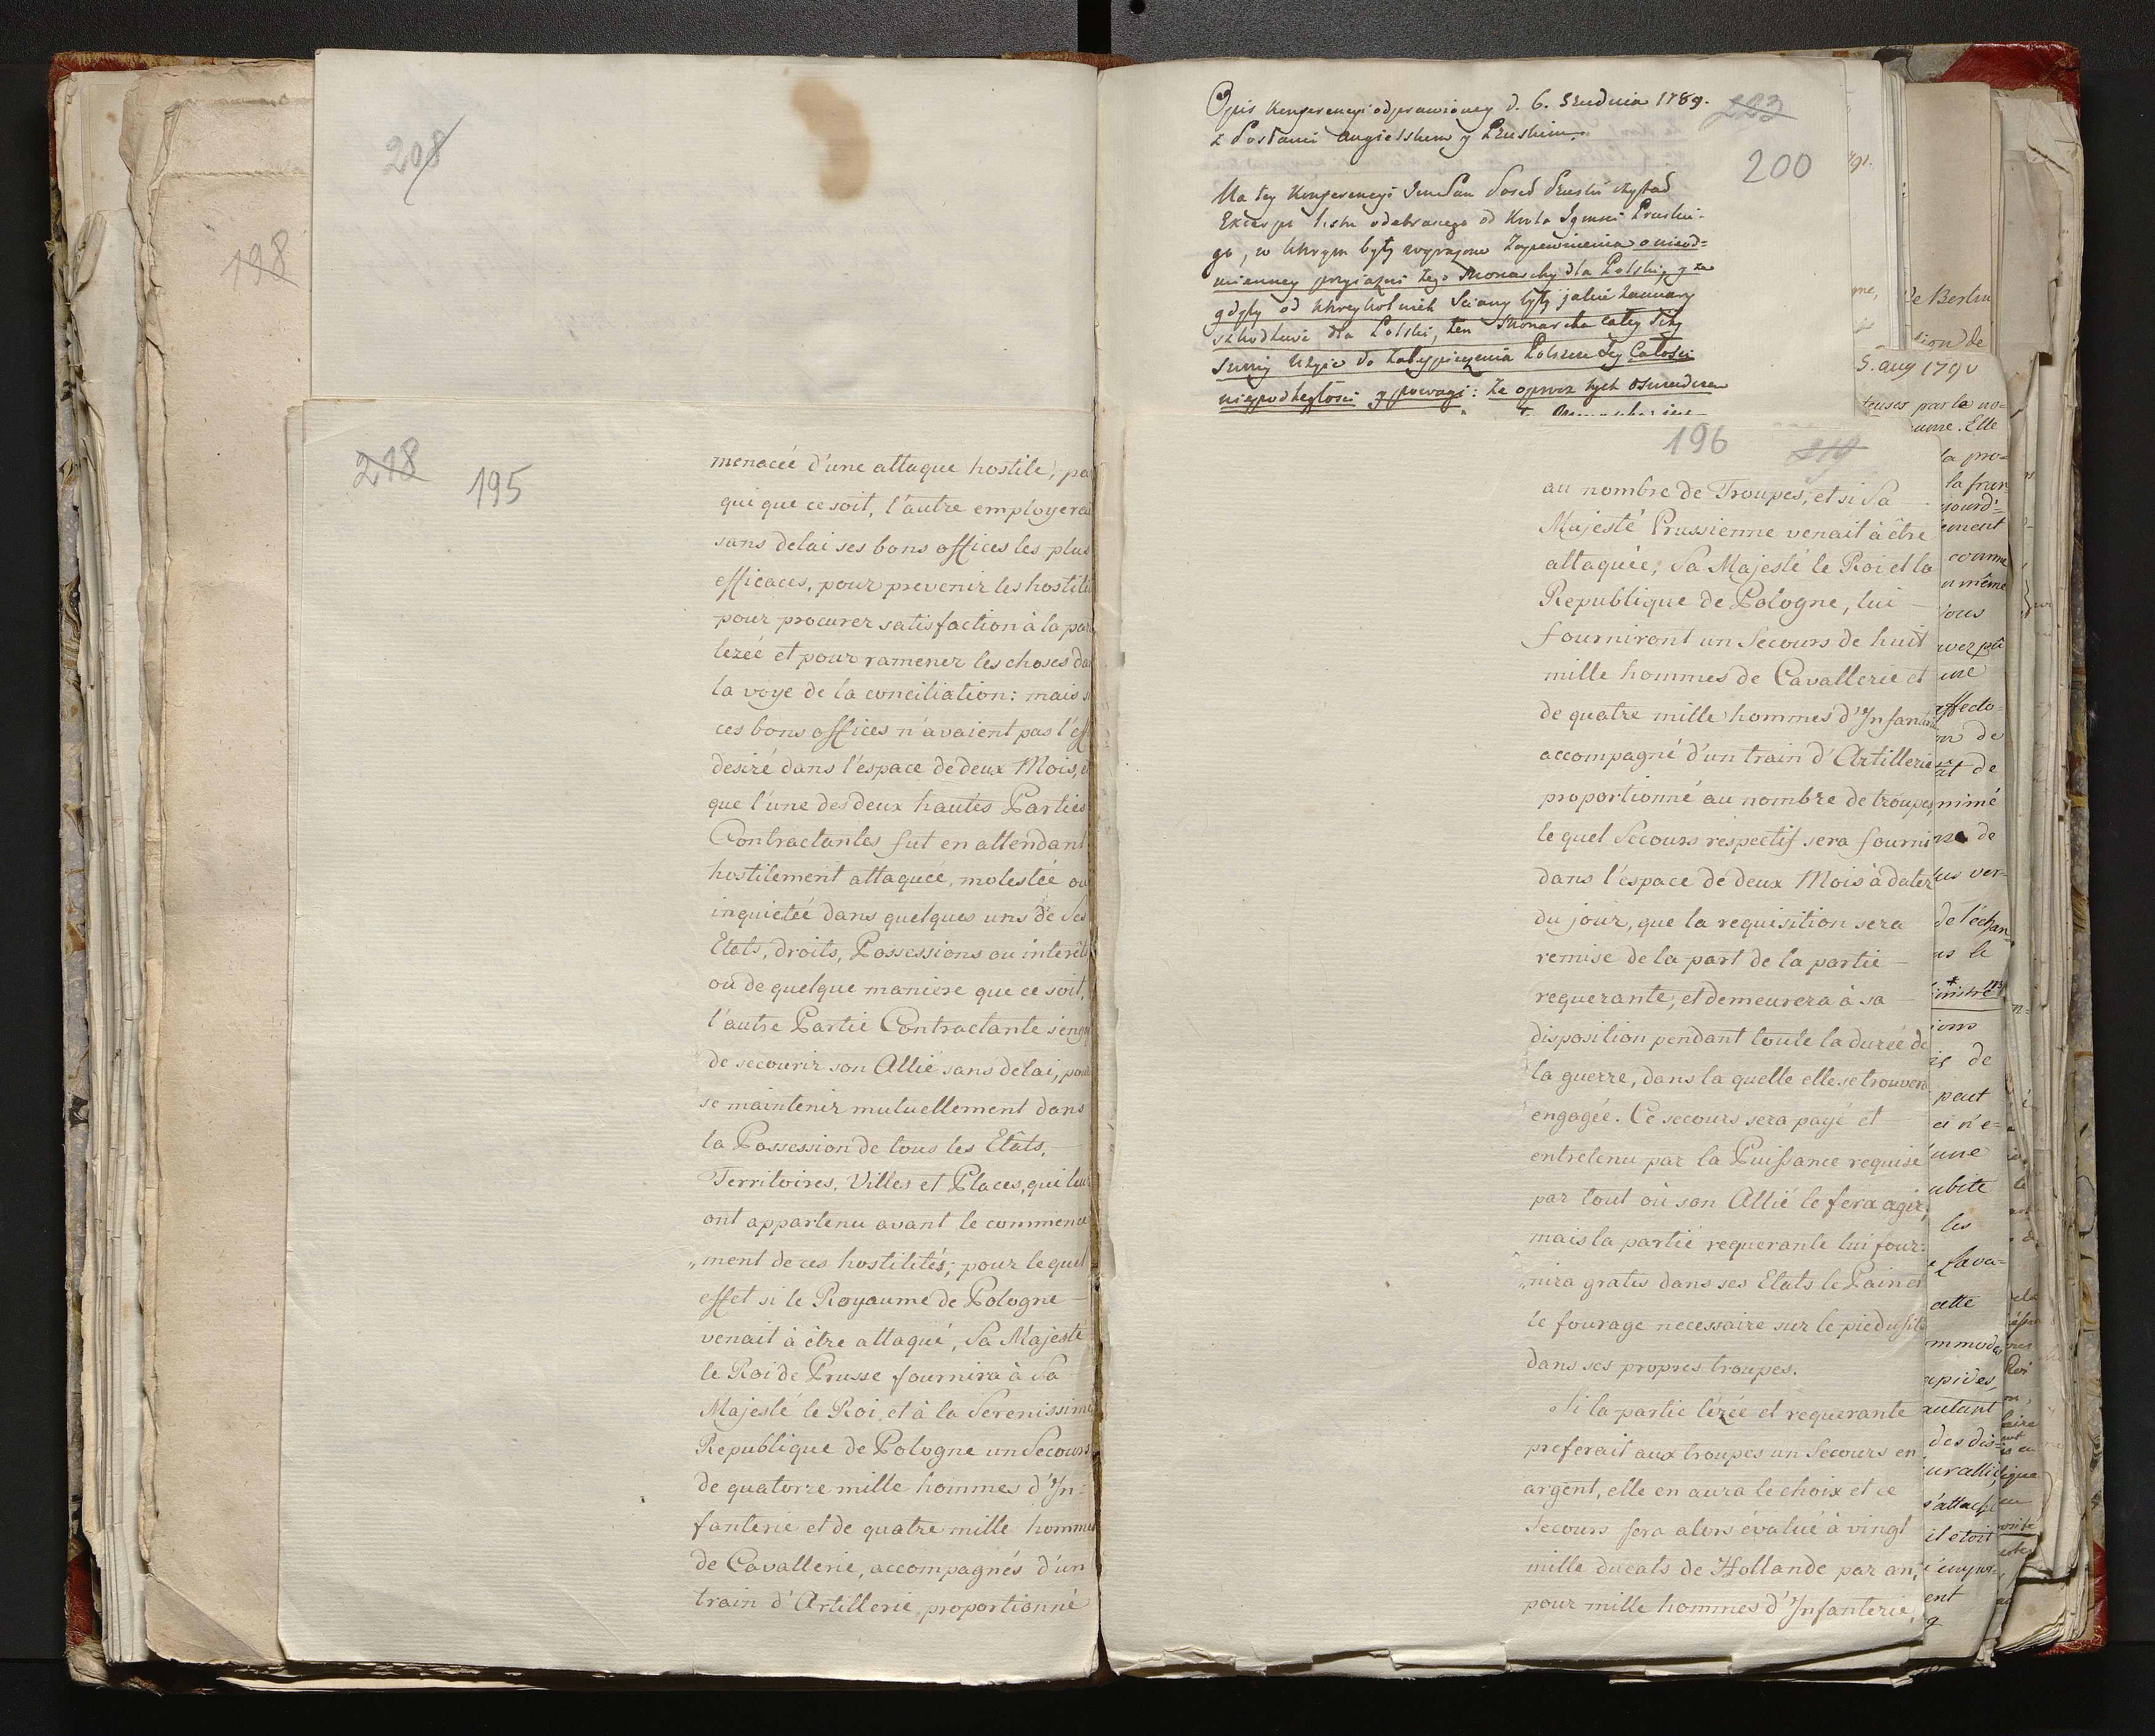 208
198
218
195
menaceé d'une attaque hostile, pa
qui que ce soit, l'autre employerai
sans delai ses bons offices les plus
efficaces, pour prevenir les hostili
pour procurer satisfaction à la par
lezeé et pour ramener les choses da
la voye de la conciliation: mais s
ces bons offices n'avaient pas l'eff
desiré dans l'espace de deux Mois, e
que l'une des deux hautes Parties
Contractantes fut en attendant
hostilement attaqueé, molesteé ou
inquieteé dans quelques uns de Ses
Etats, droits, Possessions ou interêt
ou de quelque maniere que ce soit,
l'autre Partie Contractante s'enga
de secourir son Allié sans delai, pour
se maintenir mutuellement dans
la Possession de tous les Etâts,
Territoires, Villes et Places, qui leur
ont appartenu avant le commence
„ment de ces hostilités; pour le quel
effet si le Royaume de Pologne
venait à être attaqué, Sa Majesté
le Roi de Prusse fournira à Sa
Majesté le Roi, et à la Serenissime
Republique de Pologne un Secours
de quatorze mille hommes d'In:
fanterie et de quatre mille hommes
de Cavallerie, accompagnés d'un
train d'Artillerie proportionné
Opis Konferencyi odprawioney d. 6. Grudnia 1789.
z Posłami Angielskim y Pruskim.
223
200
Na tey Konferencyi Poseł Pruski czytał
listu odebranego od Krola Pruskie-
go, w ktorym były wyrażone Zapewnienia o nieod=
mienney przyiazni tego Monarchy dla Polski, y że
gdyby od ktreykolwiek Sciany były jakie zamiary
szkodliwe dla Polski, ten Monarcha całey Siły
Swoiey użyie do Zabezpieczenia Polszcze Jey Całości
niepodległości y powagi: że oprocz tych
196
219
au nombre de Troupes, et si Sa
Majesté Prussienne venait à être
attaquée, Sa Majesté le Roi et la
Republique de Pologne, lui
fourniront un Secours de huit
mille hommes de Cavallerie et
de quatre mille hommes d'Infanterie
accompagné d'un train d'Artillerie
proportionné au nombre de troupes,
le quel Secours respectif sera fourni
dans l'espace de deux Mois à dater
du jour, que la requisition sera
remise de la part de la partie
requerante, et demeurera à sa
disposition pendant toute la durée de
la guerre, dans la quelle elle se trouvera
engagée. Ce secours sera payé et
entretenu par la Puissance requise
par tout où son Allié le fera agir,
mais la partie requerante lui four:
„nira gratis dans ses Etats le Pain et
le fourage necessaire sur le pied usité
dans ses propres troupes.
Si la partie lézée et requerante
preferait aux troupes un Secours en
argent, elle en aura le choix et ce
Secours sera alors évalué à vingt
mille ducats de Hollande par an,
pour mille hommes d'Infanterie,
de Berlin
tion de
5. aug 1790